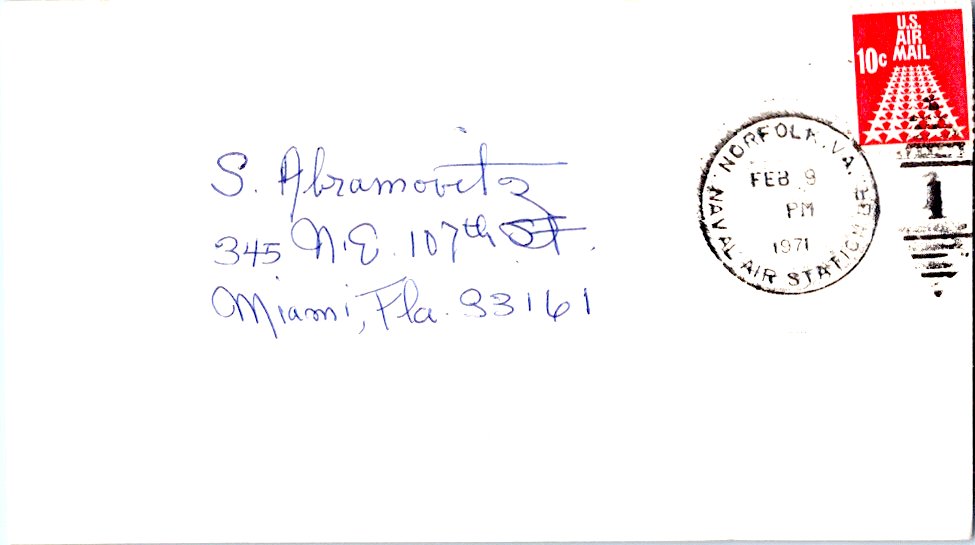 U.S.
AIR
MAIL
10c
NORFOLK, VA.
FEB 9
PM
1971
NAVAL AIR STATION BR.
1
S. Abramovitz
345 N.E. 107th St.
Miami, Fla. 33161